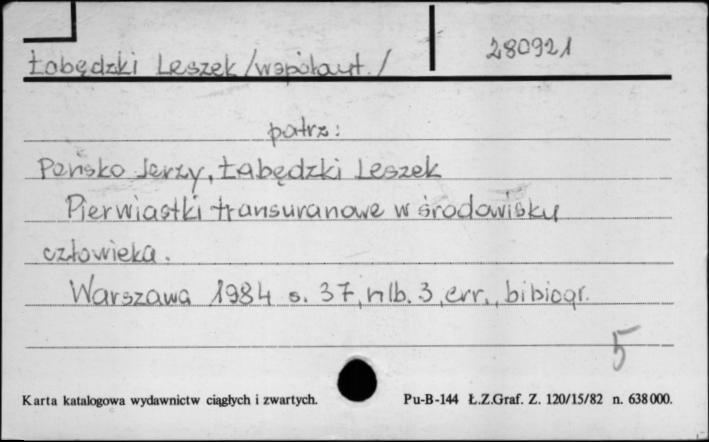 Łabędzki Leszek /współaut./ 280921
patrz:
Pensko Jerzy, Łabędzki Leszek
Pierwiastki transuranowe w środowisku
człowieka.
Warszawa 1984 s. 37, nlb. 3, err., bibiogr.
5
Karta katalogowa wydawnictw ciągłych i zwartych. Pu-B-144 Ł.Z.Graf. Z. 120/15/82 n. 638000.